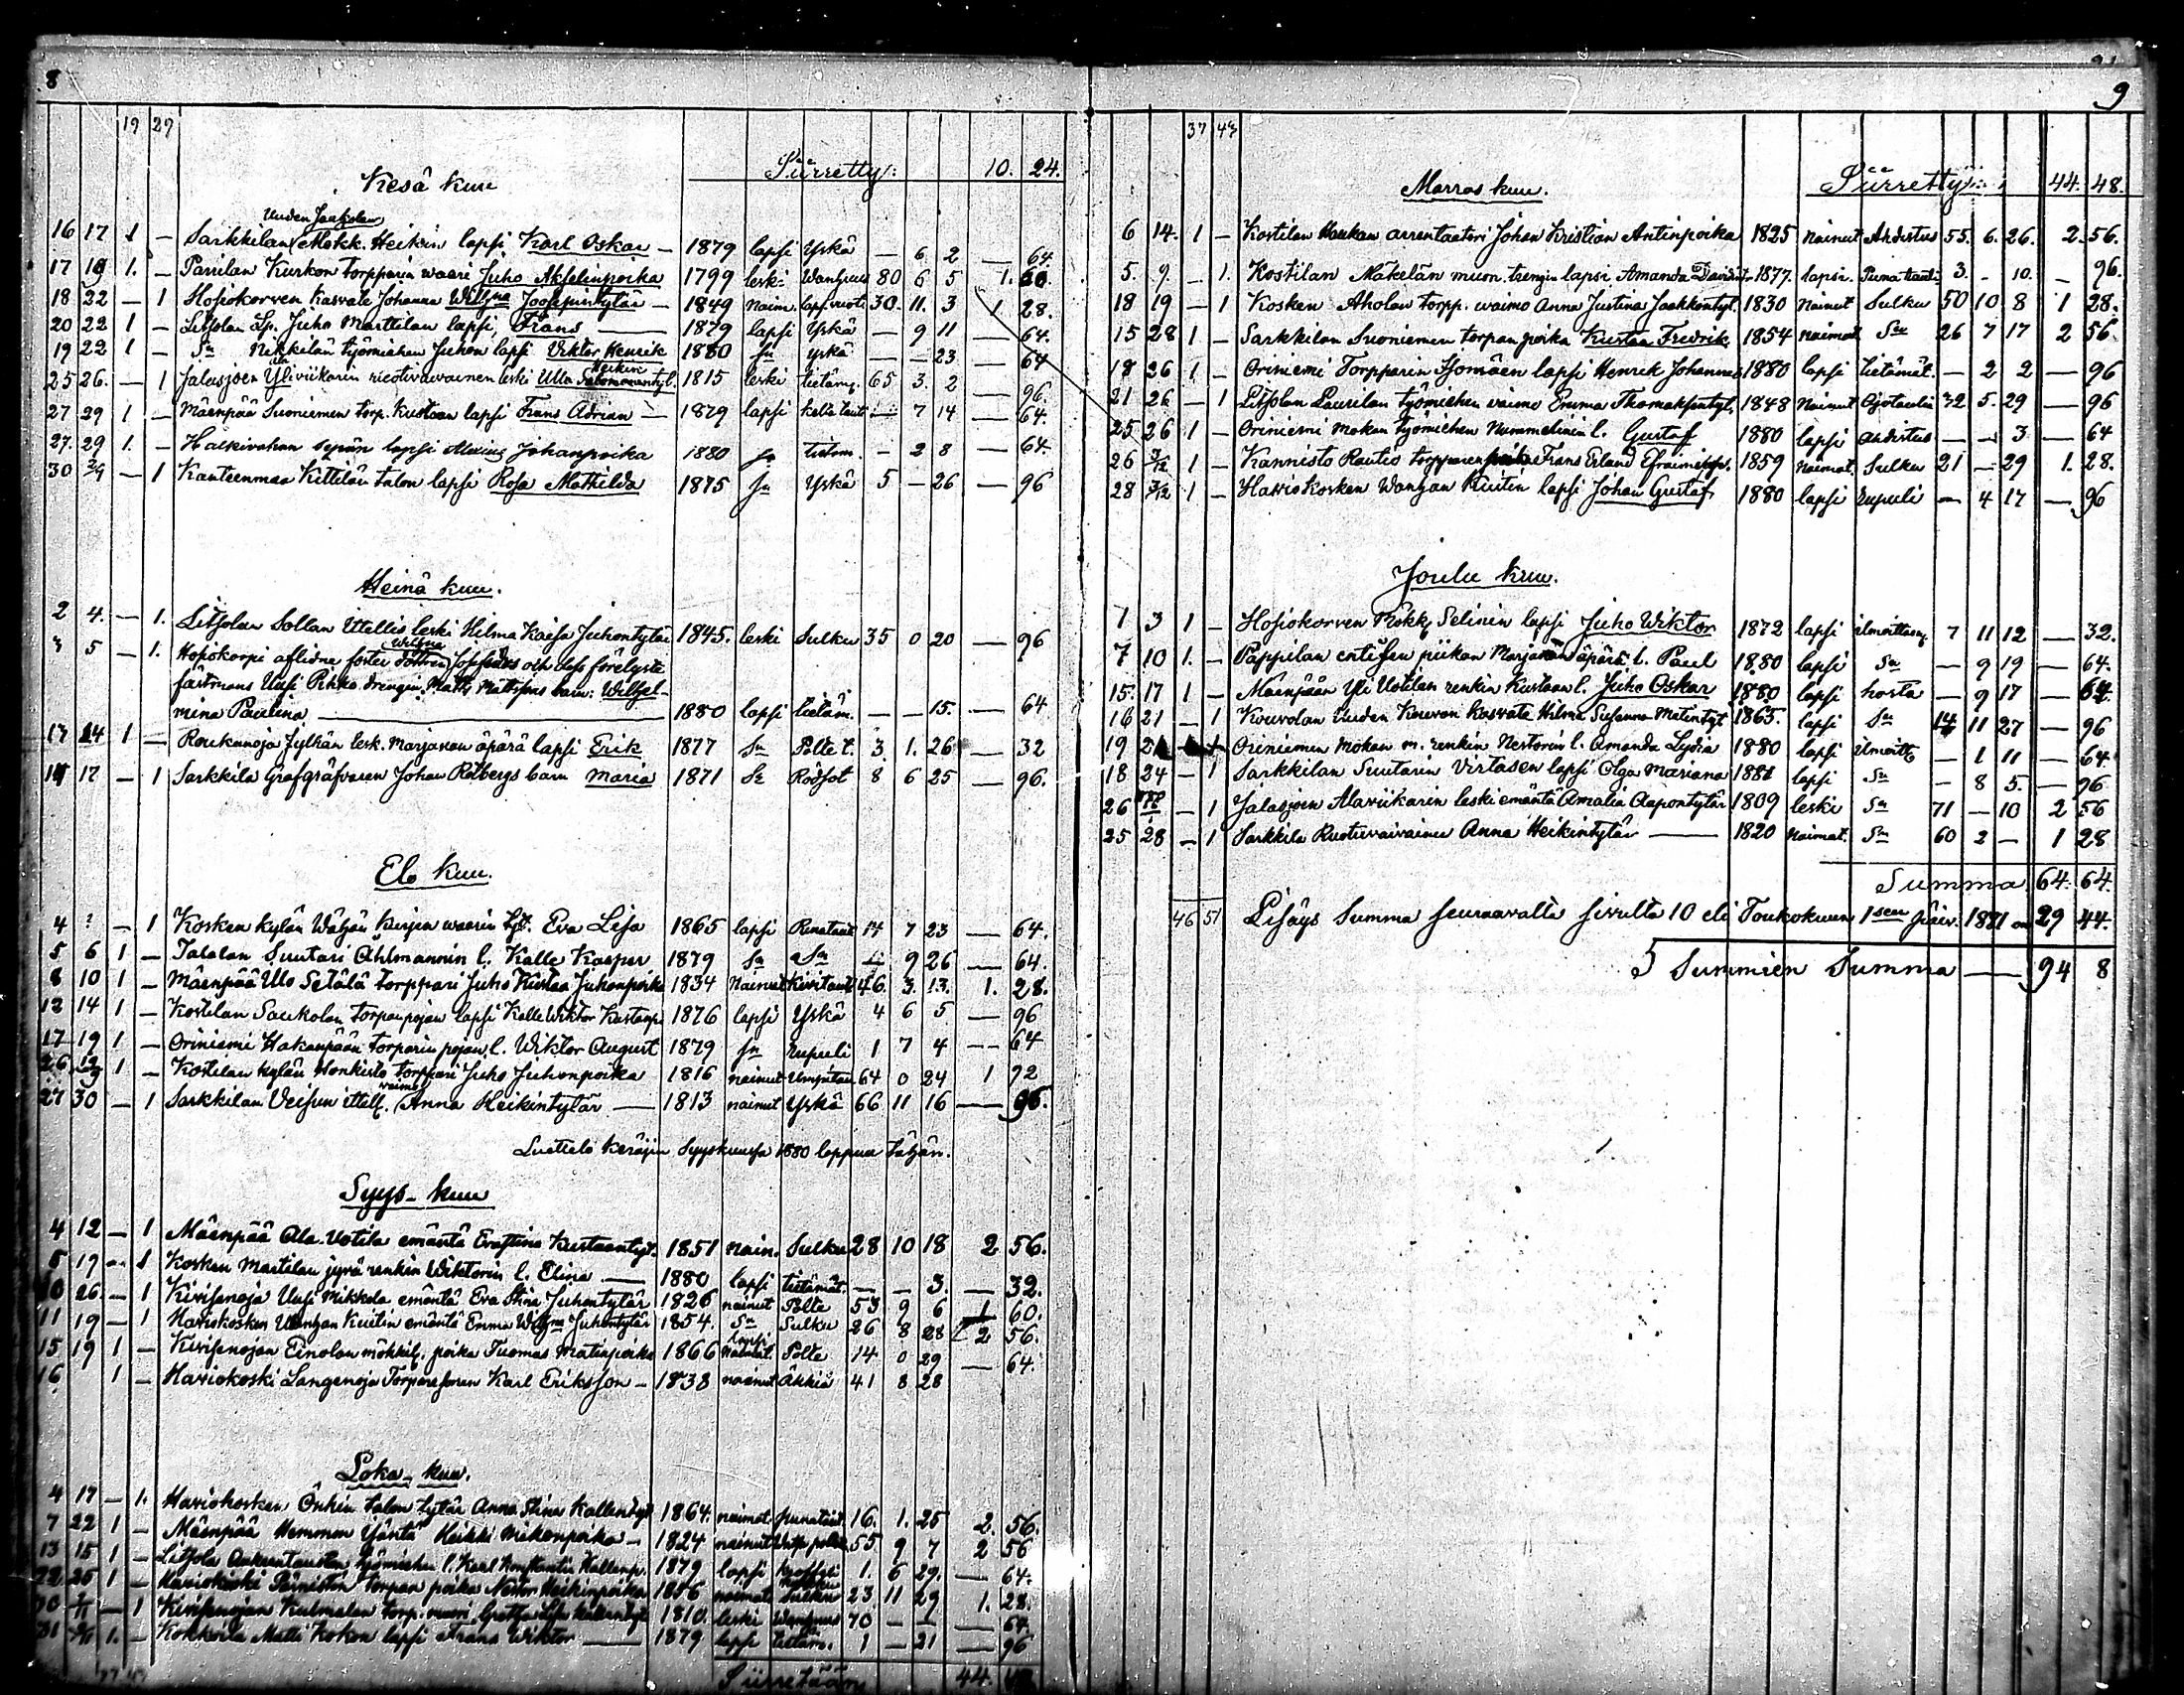 8
19 29
Kesä kuu
Siirretty: 10. 24.
Uuden Jaakolan
16 17 1 — Sarkkilan Mökk. Heikin lapsi Karl Oskar — 1879 lapsi Yskä — 6 2 — 64.
17 19 1. — Parilan Kurkon torpparin waari Juho Akselinpoika 1799 leski Wanhuus 80 6 5 1.
18 22 — 1 Hosiokorven kasvate Johanna Wilhma Joosepintytär — 1849 Naim. 30. 11. 3 1 28.
20 22 1 — Litsolan Lp. Juho Marttilan lapsi, Frans — 1879 lapsi Yskä — 9 11 — 64.
19 22 1 — Sn Nikkilän työmiehen Juhon lapsi Viktor Henrik 1880 sn Yskä — — 23 — 64
25 26. — 1 Jalasjoen Yliviikarin leski Ulla 1815 leski tietäm. 65 3. 2 — 96.
27 29 1 — Mäenpää Suoniemen torp. Kustaan lapsi Frans Adrian — 1879 lapsi — 7 14 — 64.
27. 29 1. — Haikivahan sepän lapsi Johanpoika 1880 sn tietäm. — 2 8 — 64.
30 — 1 Kanteenmaa Kittilän talon lapsi Rosa Mathilda 1875 sn Yskä 5 — 26 — 96
Heinä kuu.
2 4. — 1. Litsolan Sollan Itellis leski Hilma Kaisa Juhontytär 1845. leski Sulku 35 0 20 — 96
5 — 1. Hosiokorpi aflidne foster
fästmans Uusi Pehko drengin Matts Mattssons barn: Wilhel-
mina Paulina — 1880 lapsi tietäm. — — 15. — 64
14 1 — Roukunoja Jylhän lesk. Marjanan äpärä lapsi Erik 1877 Sn Polte t. 3. 1. 26 — 32
17 — 1 Sarkkila Grafgräfvaren Johan Rötbergs barn Maria 1871 Sn Rödsot 8 6 25 — 96.
Elo kuu.
4 ? — 1 Kosken kylän Eva Lisa 1865 lapsi 14 7 23 — 64.
5 6 1 — Talalan Suutari Ahlmannin l. Kalle Kasper 1879 Sn Sn — 9 26 — 64.
8 10 1 — Mäenpää Ulo Setälä torppari Juho Kustaa Juhonpoika 1834 Nainut 46. 3. 13. 1. 28.
12 14 1 — Kostilan Saukolan torpanpojan lapsi Kalle Wiktor Kustanp. 1876 lapsi Yskä 4 6 5 — 96
17 19 1 — Oriniemi Hakanpään torparin pojan l. Wiktor August 1879 sn rupuli 1 7 4 — 64
26 1 — Kostilan kylän Honkisto torppari Juho Juhonpoika 1816 nainut 64 0 24 1 92
waimo
27 30 — 1 Sarkkilan Veisun itell. Anna Heikintytär — 1813 nainut Yskä 66 11 16 — 96.
Luettelo keräjiin Syyskuusa 1880 loppuu tähän.
Syys-kuu
4 12 — 1 Mäenpää Ala-Uotila emäntä Evastina Kustaantyt. 1851 nain. Sulku 28 10 18 2 56.
5 19 — 1 Kosken Martilan jyvä renkin Wiktorin l. Elina — 1880 lapsi tietämät. — — 3. — 32.
10 26. — 1 Kirisenoja Uusi Mikkola emäntä Eva Stina Juhontytär 1826 nainut Polte 53 9 6 1 60.
11 19 — 1 Haviokosken Wanhan Kuitin emäntä Emma Juhontytär 1854. Sn Sulku 26 8 28 2 56.
lapsi
15 19 1 — Kirisenojan Einolan mökkil. poika Tuomas Matinpoika 1866 naimat. Polte 14 0 29 — 64.
16 1 — Haviokoski Langenoja Torparesonen Karl Eriksson — 1838 nainut Äkkiä 41 8 28
Loka-kuu.
4 17 — 1. Haviokosken Önkin talon tytär Anna Stina Kallentyt. 1864. naimat. punataut. 16. 1. 25 2. 56.
7 22 1 — Mäenpää Hemmon Isäntä Heikki Mikonpoika — 1824 nainut 55 9 7 2 56
13 15 1 — Litsola työmiehen l. Karl Konstantin Kallenp. 1879 lapsi 1. 6 29. — 64.
1 — Haviokoski torpan poika Nestor Heikinpoika 1856 naimat. Sulku 23 11 29 1. 28.
— 1 Kirisenojan Kulmalan torp. muori 1810. leski Wanhuus 70 — — — 64.
31 1. — Kokkoila Matti Kokon lapsi Frans Wiktor — 1879 lapsi tietäm. 1 — 21 — 96
Siirretään 44. 48
9
37 43
Marras kuu.
Siirretty: 44. 48.
6 14. 1 — Kostilan Haukan arrentaatori Johan Kristian Antinpoika 1825 Nainut Ahdistus 55. 6. 26. 2. 56.
5. 9. — 1. Kostilan Mäkelän muon. rengin lapsi Amanda 1877. lapsi. Punatauti 3. — 10. — 96.
18 19 — 1 Kosken Aholan torpp. waimo Anna Justina Jaakkontyt. 1830 Nainut Sulku 50 10 8 1 28.
15 28 1 — Sarkkilan Suoniemen torpan poika Kustaa Fredrik 1854 naimat. Sn 26 7 17 2 56.
18 26 1 — Oriniemi Torpparin lapsi Henrik Johannes 1880 lapsi tietämät. — 2 2 — 96
21 26 — 1 Litsolan Laurilan työmiehen vaimo Emma Thomaksentyt. 1848 Nainut 32 5. 29 — 96
25 26 1 — Oriniemi Mokan työmiehen Nummelinin l. Gustaf 1880 lapsi ahdistus — — 3 — 64
26 3/12 1 — Kannisto Rautio torpparen Frans Erland 1859 naimat. Sulku 21 — 29 1. 28.
28 3/12 1 — Haviokosken Wanhan Kuitin lapsi Johan Gustaf 1880 lapsi rupuli — 4 17 — 96
Joulu kuu.
1 3 1 — Hosiokorven Mökk. Selinin lapsi Juho Wiktor 1872 lapsi 7 11 12 — 32.
7 10 1. — Pappilan entisen piikan Marjanan äpärä l. Paul 1880 lapsi Sn — 9 19 — 64.
15. 17 1 — Mäenpään Yli Uotilan renkin Kustaan l. Juho Oskar 1880 lapsi hosta — 9 17 — 64.
16 21 — 1 Kouvolan Uuden Kouvon kasvate Hilma Susanna Matintyt. 1865. lapsi Sn 14 11 27 — 96
19 Oriniemen Mokan m. renkin Nestorin l. Amanda Lydia 1880 lapsi — 1 11 — 64.
18 24 — 1 Sarkkilan Suutarin Virtasen lapsi Olga Mariana 1881 lapsi Sn — 8 5. — 96
26 — 1 Jalasjoen Alaviikarin leski emäntä Amalia Aapontytär 1809 leski Sn 71 — 10 2 56
25 28 — 1 Sarkkila Ruotuvaivainen Anna Heikintytär — 1820 Naimat. Sn 60 2 — 1 28
Summa 64. 64.
46 51 Lisäys Summa seuraavalta sivulta 10 eli Toukokuun 1sen päiv. 1881 on 29 44.
Summien Summa — 94 8